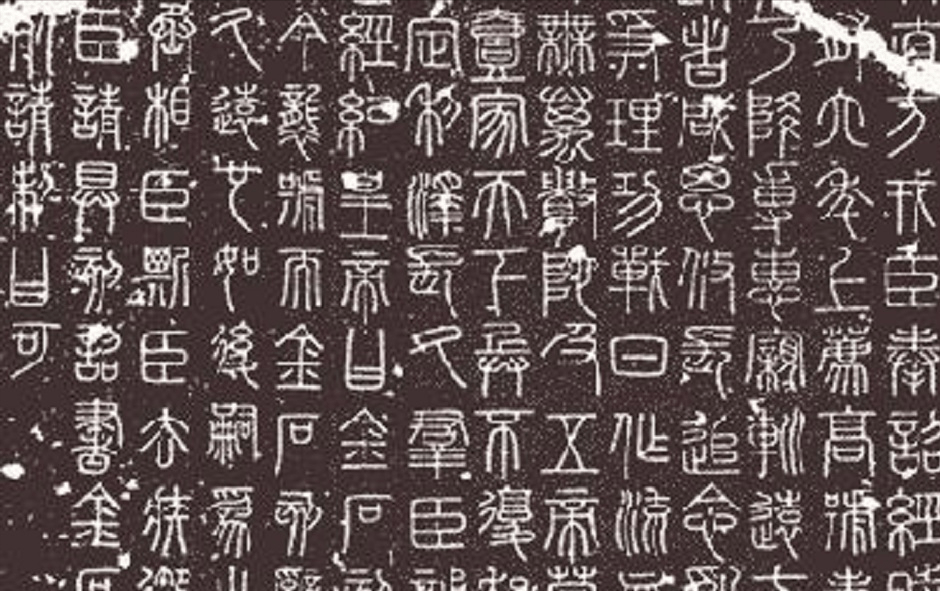 直方戎臣奉詔經時
六年上薦高號孝
乃降專惠親巡遠方
者咸思攸長追念亂
爭理功戰日作流血
無萬數陀及五帝莫
壹家天下兵不復起
定利澤長久群臣誦
經紀皇帝曰金石刻
今襲號而金石刻辭
久遠也如後嗣為之
丞相臣斯臣去疾御
臣請具刻詔書金石
死請制曰可